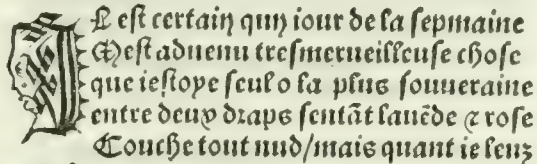 IL est certain quŋ iour de la sepmaine
Mest aduenu tresmerueilleuse chose
que iestoye seul o la plus souueraine
entre deux draps sentāt lauēde ⁊ rose
Couche tout nud/mais quant ie leuz